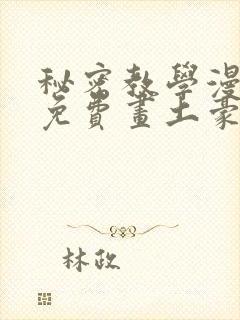 秘密教學漫
免費畫土豪
林政